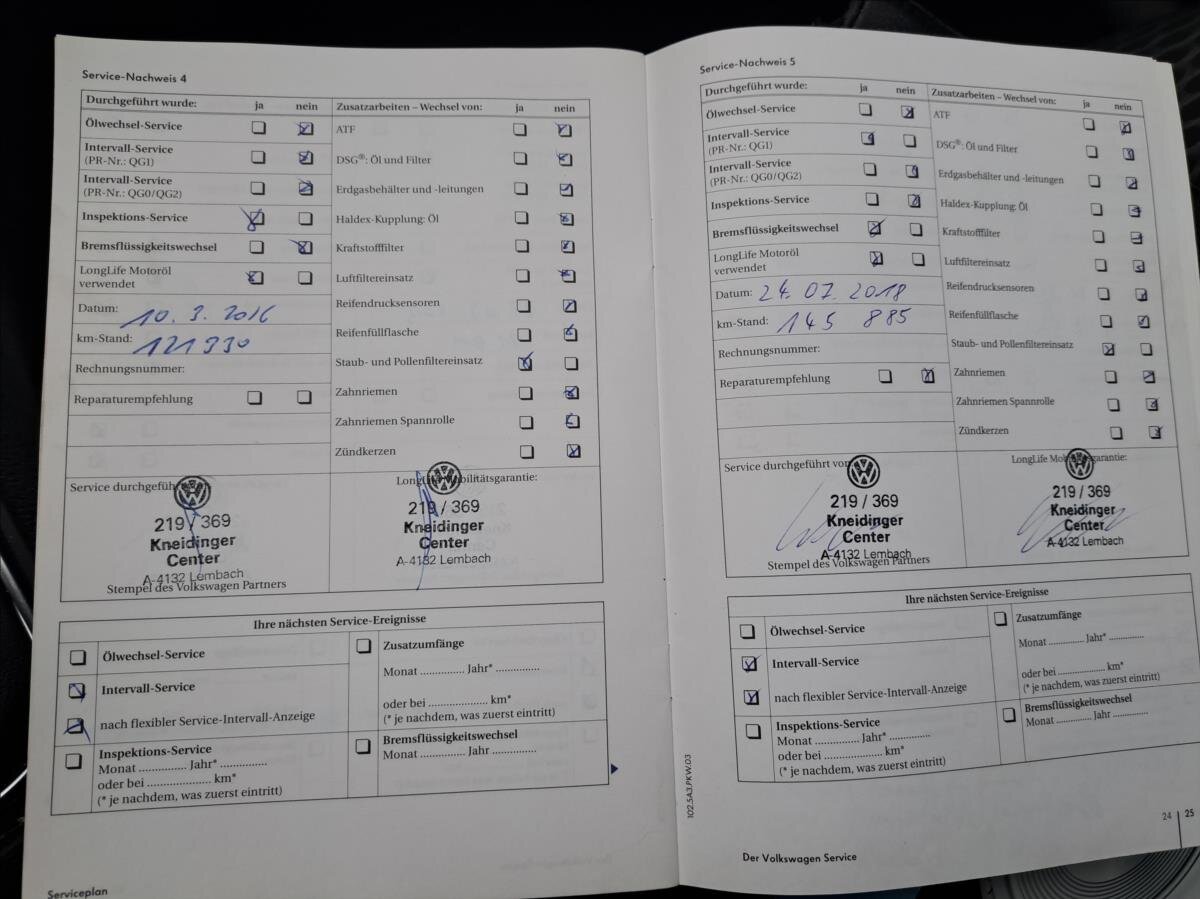 Service-Nachweis 4
Durchgeführt wurde: ja nein
Ölwechsel-Service
Intervall-Service
(PR-Nr.: QG1)
Intervall-Service
(PR-Nr.: QG0/QG2)
Inspektions-Service
Bremsflüssigkeitswechsel
LongLife Motoröl
verwendet
Datum: 10. 3. 2016
km-Stand: 121330
Rechnungsnummer:
Reparaturempfehlung
Zusatzarbeiten – Wechsel von: ja nein
ATF
DSG®: Öl und Filter
Erdgasbehälter und -leitungen
Haldex-Kupplung: Öl
Kraftstofffilter
Luftfiltereinsatz
Reifendrucksensoren
Reifenfüllflasche
Staub- und Pollenfiltereinsatz
Zahnriemen
Zahnriemen Spannrolle
Zündkerzen
Service durchgeführt
219 / 369
Kneidinger
Center
A-4132 Lembach
Stempel des Volkswagen Partners
LongLife Mobilitätsgarantie:
219 / 369
Kneidinger
Center
A-4132 Lembach
Ihre nächsten Service-Ereignisse
Ölwechsel-Service
Intervall-Service
nach flexibler Service-Intervall-Anzeige
Inspektions-Service
Monat .............. Jahr* ..............
oder bei .................... km*
(* je nachdem, was zuerst eintritt)
Zusatzumfänge
Monat ............. Jahr* ..............
oder bei .................... km*
(* je nachdem, was zuerst eintritt)
Bremsflüssigkeitswechsel
Monat ............. Jahr ..............
Serviceplan
Service-Nachweis 5
Durchgeführt wurde: ja nein
Ölwechsel-Service
Intervall-Service
(PR-Nr.: QG1)
Intervall-Service
(PR-Nr.: QG0/QG2)
Inspektions-Service
Bremsflüssigkeitswechsel
LongLife Motoröl
verwendet
Datum: 24. 07. 2018
km-Stand: 145 885
Rechnungsnummer:
Reparaturempfehlung
Zusatzarbeiten – Wechsel von: ja nein
ATF
DSG®: Öl und Filter
Erdgasbehälter und -leitungen
Haldex-Kupplung: Öl
Kraftstofffilter
Luftfiltereinsatz
Reifendrucksensoren
Reifenfüllflasche
Staub- und Pollenfiltereinsatz
Zahnriemen
Zahnriemen Spannrolle
Zündkerzen
Service durchgeführt von:
219 / 369
Kneidinger
Center
A-4132 Lembach
Stempel des Volkswagen Partners
LongLife Mobilitätsgarantie:
219 / 369
Kneidinger
Center
A-4132 Lembach
Ihre nächsten Service-Ereignisse
Ölwechsel-Service
Intervall-Service
nach flexibler Service-Intervall-Anzeige
Inspektions-Service
Monat .............. Jahr* ..............
oder bei .................... km*
(* je nachdem, was zuerst eintritt)
Zusatzumfänge
Monat ............. Jahr* .............
oder bei .................... km*
(* je nachdem, was zuerst eintritt)
Bremsflüssigkeitswechsel
Monat ............. Jahr .............
102.5A3.PKW.03
Der Volkswagen Service
24 | 25